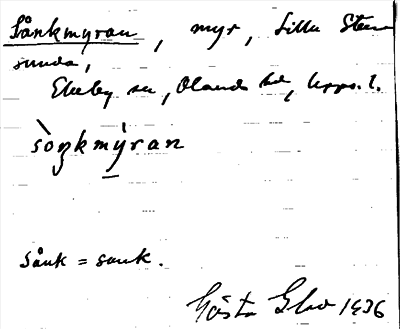 Sånkmyran, myr, Lilla Sten-
sunda,
Ekeby sn, Olands hd, Upps. l.
sòŋkmýran
Sånk = sank.
Gösta 1936